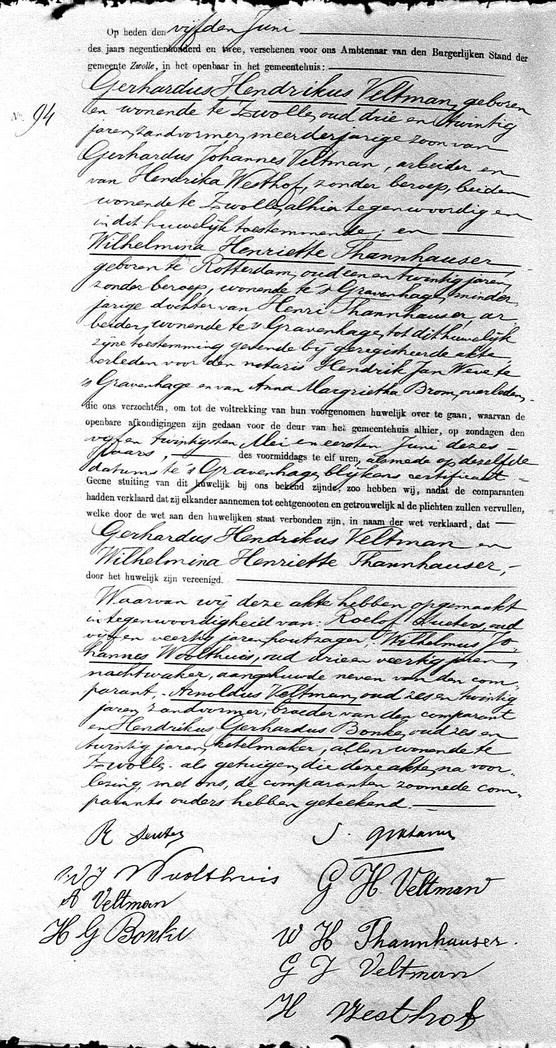 Op heden den vijfden Juni
des jaars negentienhonderd en twee, verschenen voor ons Ambtenaar van den Burgerlijken Stand der
gemeente Zwolle, in het openbaar in het gemeentehuis:
Gerhardus Hendrikus Veltman, geboren
No. 94
en wonende te Zwolle, oud drie en twintig
jaren, zandvormer, meerderjarige zoon van
Gerhardus Johannes Veltman, arbeider en
van Hendrika Westhof, zonder beroep, beiden
wonende te Zwolle, alhier tegenwoordig en
in dit huwelijk toestemmende; en
Wilhelmina Henriette Thannhauser,
geboren te Rotterdam, oud een en twintig jaren,
zonder beroep, wonende te 's Gravenhage, minder-
jarige dochter van Henri Thannhauser, ar-
beider, wonende te 's Gravenhage, tot dit huwelijk
zijne toestemming gevende bij geregistreerde akte
verleden voor den notaris Hendrik Jan Weve te
's Gravenhage en van Anna Margrietha Brom, overleden,
die ons verzochten, om tot de voltrekking van hun voorgenomen huwelijk over te gaan, waarvan de
openbare afkondigingen zijn gedaan voor de deur van het gemeentehuis alhier, op zondagen den
vijf en twintigsten Mei en eersten Juni dezes
jaars, des voormiddags te elf uren, alsmede op dezelfde
datums te 's Gravenhage, blijkens certificaat
Geene stuiting van dit huwelijk bij ons bekend zijnde, zoo hebben wij, nadat de comparanten
hadden verklaard dat zij elkander aannemen tot echtgenooten en getrouwelijk al de plichten zullen vervullen,
welke door de wet aan den huwelijken staat verbonden zijn, in naam der wet verklaard, dat
Gerhardus Hendrikus Veltman en
Wilhelmina Henriette Thannhauser,
door het huwelijk zijn vereenigd.
Waarvan wij deze akte hebben opgemaakt
in tegenwoordigheid van: Roelof oud
vijf en veertig jaren, Wilhelmus Jo-
hannes Woolthuis, oud drie en veertig jaren,
nachtwaker, aangehuwde neven van den com-
parant, Arnoldus Veltman, oud zes en twintig
jaren, zandvormer, broeder van den comparant
en Hendrikus Gerhardus Bonke, oud zes en
twintig jaren, ketelmaker, allen wonende te
Zwolle, als getuigen, die deze akte, na voor-
lezing, met ons, de comparanten zoomede com-
parants ouders hebben geteekend.
R
W J Woolthuis
G H Veltman
A Veltman
H G Bonke
W H Thannhauser.
G J Veltman
H Westhof